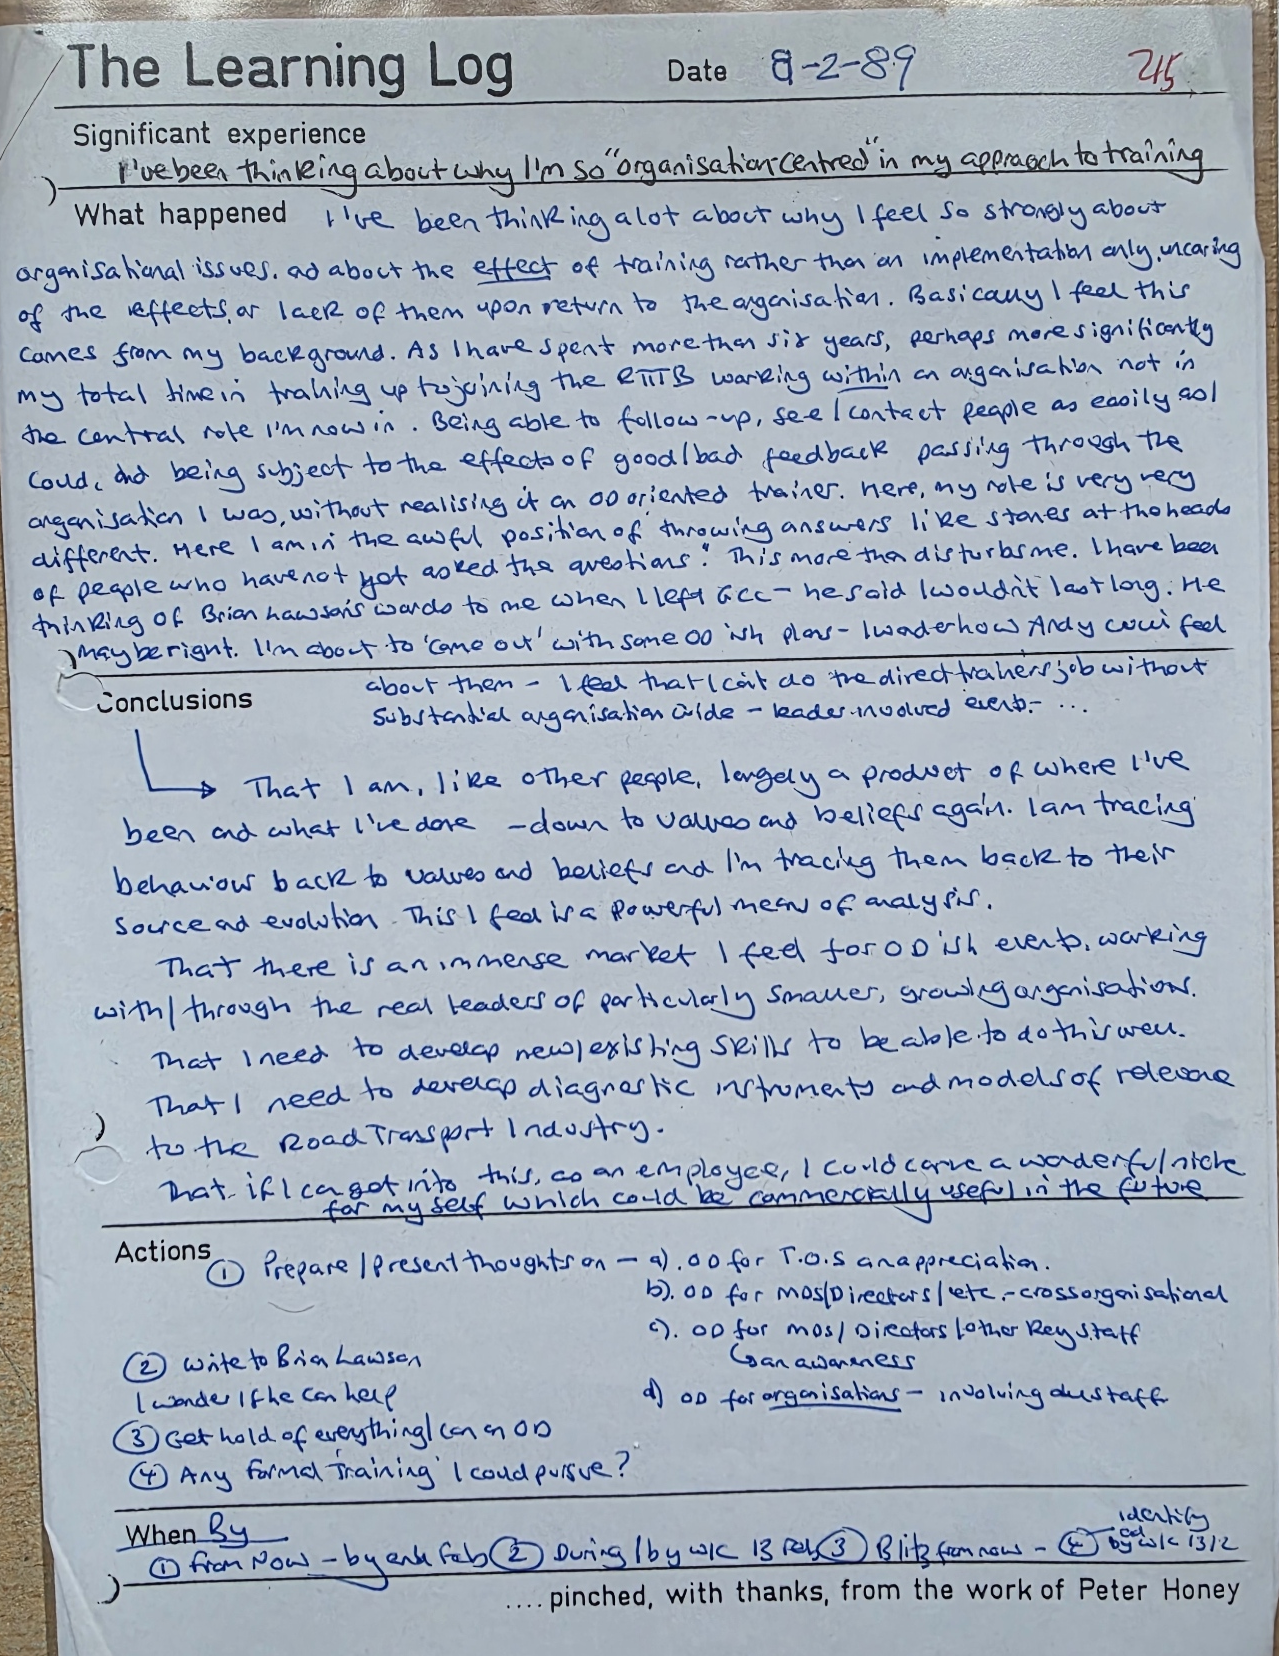 The Learning Log Date 8-2-89 245
Significant experience
I've been thinking about why I'm so "organisation-centred" in my approach to training
What happened I've been thinking a lot about why I feel so strongly about
organisational issues. ad about the effect of training rather than an implementation only, uncaring
of the effects, or lack of them upon return to the organisation. Basically I feel this
comes from my background. As I have spent more than six years, perhaps more significantly
my total time in training up to joining the RTITB working within an organisation not in
the central role I'm now in. Being able to follow-up, see/contact people as easily as I
could, and being subject to the effects of good/bad feedback passing through the
organisation I was, without realising it an OD oriented trainer. Here, my role is very very
different. Here I am in the awful position of "throwing answers like stones at the heads
of people who have not yet asked the questions". This more than disturbs me. I have been
thinking of Brian Lawson's words to me when I left GCC - he said I wouldn't last long. He
may be right. I'm about to 'come out' with some OD ish plans - I wonder how Andy will feel
about them - I feel that I can't do the direct trainers job without
Conclusions substantial organisation wide - leader-involved events - ...
That I am, like other people, largely a product of where I've
been and what I've done - down to values and beliefs again. I am tracing
behaviour back to values and beliefs and I'm tracing them back to their
source and evolution. This I feel is a powerful means of analysis.
That there is an immense market I feel for OD ish events, working
with/through the real leaders of particularly smaller, growing organisations.
That I need to develop new/existing skills to be able to do this well.
That I need to develop diagnostic instruments and models of relevance
to the Road Transport Industry.
That if I can get into this, as an employee, I could carve a wonderful niche
for myself which could be commercially useful in the future
Actions
① Prepare/present thoughts on - a). OD for T.O.S an appreciation.
b). OD for MDs/Directors/etc. - cross organisational
c). OD for MDs/Directors/other Key staff
↳ an awareness
② Write to Brian Lawson
I wonder if he can help
d) OD for organisations - involving all staff
③ Get hold of everything I can on OD
④ Any formal 'training' I could pursue?
When By
① From Now - by end Feb ② During/by w/c 13 Feb ③ Blitz from now - ④ identify by w/c 13/2
.... pinched, with thanks, from the work of Peter Honey